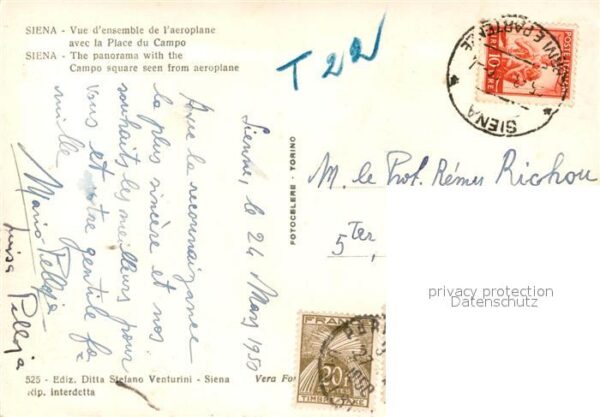 SIENA - Vue d'ensemble de l'aeroplane
avec la Place du Campo
SIENA - The panorama with the
Campo square seen from aeroplane
T 22
POSTE ITALIANE
10 LIRE
SIENA
Sienne, le 24 Mars 1950
Avec la reconnaissance
la plus sincère et nos
souhaits les meilleurs pour
Vous et votre gentile fa
mille
Mario Pilleja
Luisa Pilleja
FOTOCELERE - TORINO
M. le Prof. Rémus Richou
5ter,
privacy protection
Datenschutz
FRANCE
20F
TIMBRE TAXE
525 - Ediz. Ditta Stefano Venturini - Siena
Rip. interdetta
Vera Fo